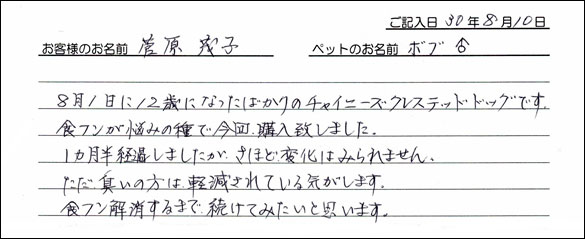 ご記入日 30年8月10日
お客様のお名前 菅原 茂子 ペットのお名前 ボブ ♂
8月1日に12歳になったばかりのチャイニーズクレステッドドッグです。
食フンが悩みの種で今回購入致しました。
1カ月半経過しましたが、さほど変化はみられません。
ただ臭いの方は軽減されている気がします。
食フン解消するまで続けてみたいと思います。